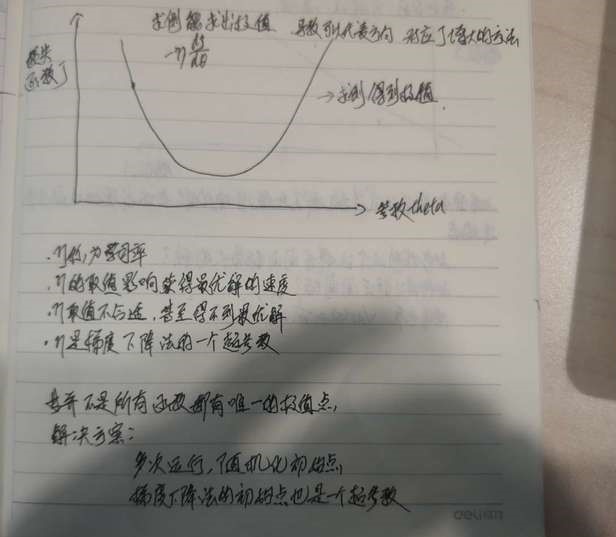 求导能求出极值 导数可以代表方向 对应了增大的方法
-η dJ/dθ
损失函数J
→求导得到极值
参数theta
·η称为学习率
·η的取值影响获得最优解的速度
·η取值不合适,甚至得不到最优解
·η是梯度下降法的一个超参数
其并不是所有函数都有唯一的极值点,
解决方案:
多次运行,随机化初始点
梯度下降法的初始点也是一个超参数
deli